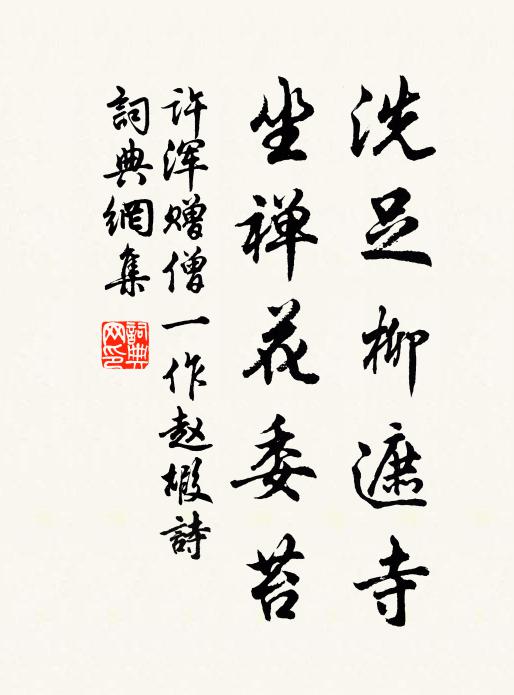 洗足柳遮寺
坐禅花委苔
许浑赠僧一作赵嘏詩
詞典網集
詞典网印